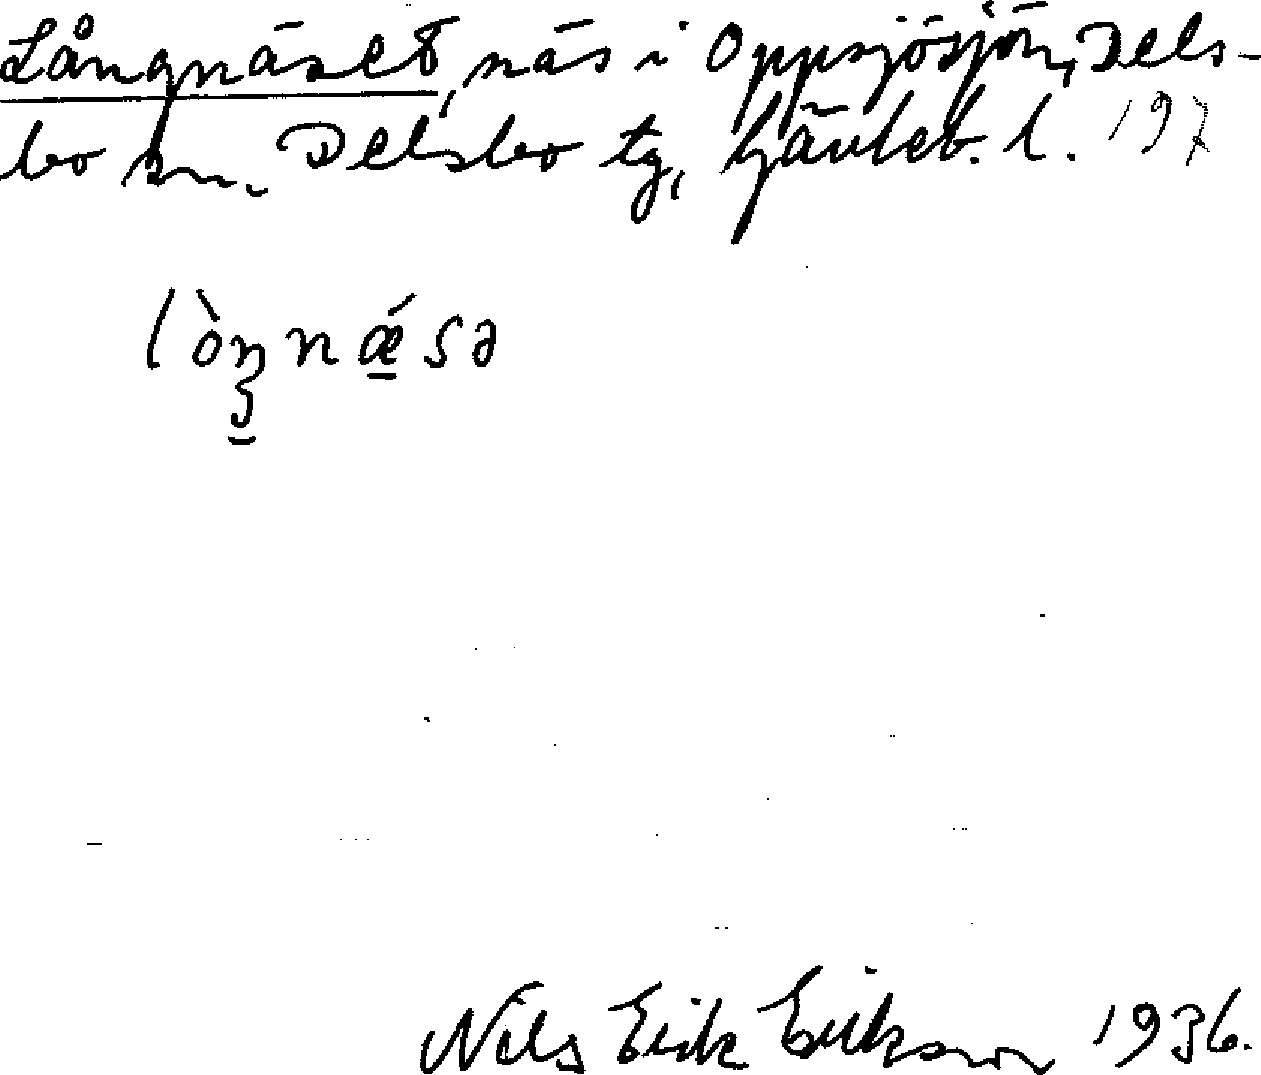 Långnäset, näs i Oppsjösjön, Dels-
bo sn. Delsbo tg, Gävleb. l. 197
lòŋnǽsə
Nils Erik Erikson 1936.